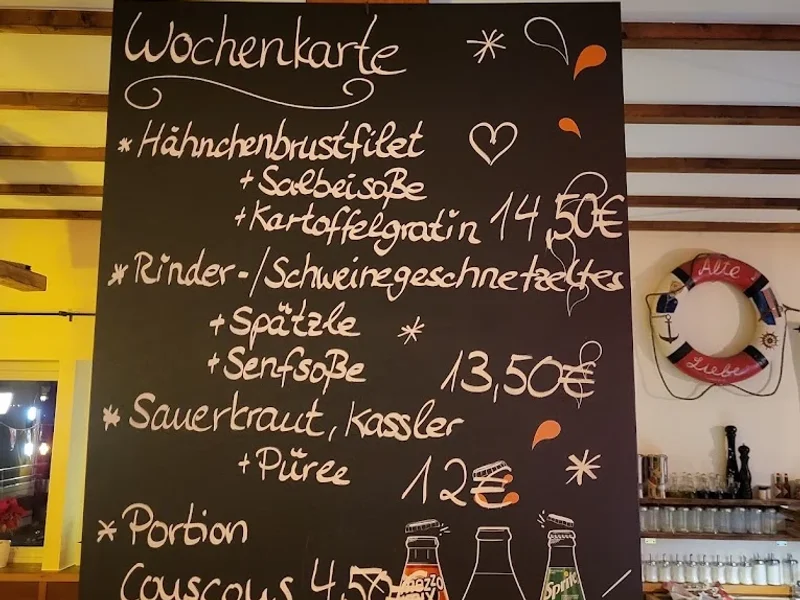 Wochenkarte
* Hähnchenbrustfilet
+ Salbeisoße
+ Kartoffelgratin 14,50€
* Rinder-/Schweinegeschnetzeltes
+ Spätzle
+ Senfsoße 13,50€
* Sauerkraut, Kassler
+ Püree 12€
* Portion
Couscous 4,50
Sprite
Alte
Liebe